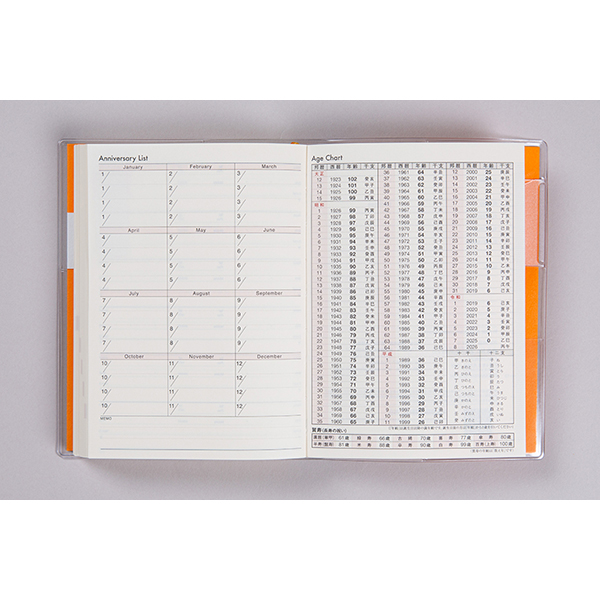 Anniversary List
January February March
1/ 2/ 3/
1/ 2/ 3/
1/ 2/ 3/
1/ 2/ 3/
April May June
4/ 5/ 6/
4/ 5/ 6/
4/ 5/ 6/
4/ 5/ 6/
July August September
7/ 8/ 9/
7/ 8/ 9/
7/ 8/ 9/
7/ 8/ 9/
October November December
10/ 11/ 12/
10/ 11/ 12/
10/ 11/ 12/
10/ 11/ 12/
MEMO
Age Chart
邦暦 西暦 年齢 干支
大正
12 1923 102 癸亥
13 1924 101 甲子
14 1925 100 乙丑
15 1926 99 丙寅
昭和
1 1926 99 丙寅
2 1927 98 丁卯
3 1928 97 戊辰
4 1929 96 己巳
5 1930 95 庚午
6 1931 94 辛未
7 1932 93 壬申
8 1933 92 癸酉
9 1934 91 甲戌
10 1935 90 乙亥
11 1936 89 丙子
12 1937 88 丁丑
13 1938 87 戊寅
14 1939 86 己卯
15 1940 85 庚辰
16 1941 84 辛巳
17 1942 83 壬午
18 1943 82 癸未
19 1944 81 甲申
20 1945 80 乙酉
21 1946 79 丙戌
22 1947 78 丁亥
23 1948 77 戊子
24 1949 76 己丑
25 1950 75 庚寅
26 1951 74 辛卯
27 1952 73 壬辰
28 1953 72 癸巳
29 1954 71 甲午
30 1955 70 乙未
31 1956 69 丙申
32 1957 68 丁酉
33 1958 67 戊戌
34 1959 66 己亥
35 1960 65 庚子
邦暦 西暦 年齢 干支
36 1961 64 辛丑
37 1962 63 壬寅
38 1963 62 癸卯
39 1964 61 甲辰
40 1965 60 乙巳
41 1966 59 丙午
42 1967 58 丁未
43 1968 57 戊申
44 1969 56 己酉
45 1970 55 庚戌
46 1971 54 辛亥
47 1972 53 壬子
48 1973 52 癸丑
49 1974 51 甲寅
50 1975 50 乙卯
51 1976 49 丙辰
52 1977 48 丁巳
53 1978 47 戊午
54 1979 46 己未
55 1980 45 庚申
56 1981 44 辛酉
57 1982 43 壬戌
58 1983 42 癸亥
59 1984 41 甲子
60 1985 40 乙丑
61 1986 39 丙寅
62 1987 38 丁卯
63 1988 37 戊辰
64 1989 36 己巳
平成
1 1989 36 己巳
2 1990 35 庚午
3 1991 34 辛未
4 1992 33 壬申
5 1993 32 癸酉
6 1994 31 甲戌
7 1995 30 乙亥
8 1996 29 丙子
9 1997 28 丁丑
10 1998 27 戊寅
11 1999 26 己卯
邦暦 西暦 年齢 干支
12 2000 25 庚辰
13 2001 24 辛巳
14 2002 23 壬午
15 2003 22 癸未
16 2004 21 甲申
17 2005 20 乙酉
18 2006 19 丙戌
19 2007 18 丁亥
20 2008 17 戊子
21 2009 16 己丑
22 2010 15 庚寅
23 2011 14 辛卯
24 2012 13 壬辰
25 2013 12 癸巳
26 2014 11 甲午
27 2015 10 乙未
28 2016 9 丙申
29 2017 8 丁酉
30 2018 7 戊戌
31 2019 6 己亥
令和
1 2019 6 己亥
2 2020 5 庚子
3 2021 4 辛丑
4 2022 3 壬寅
5 2023 2 癸卯
6 2024 1 甲辰
7 2025 0 乙巳
丙午
十干 十二支
賀寿(長寿の祝い)
還暦(華甲) 61歳 緑寿 66歳 古稀 70歳 喜寿 77歳 傘寿 80歳
半寿(盤寿) 81歳 米寿 88歳 卒寿 90歳 白寿 99歳 百寿(上寿) 100歳